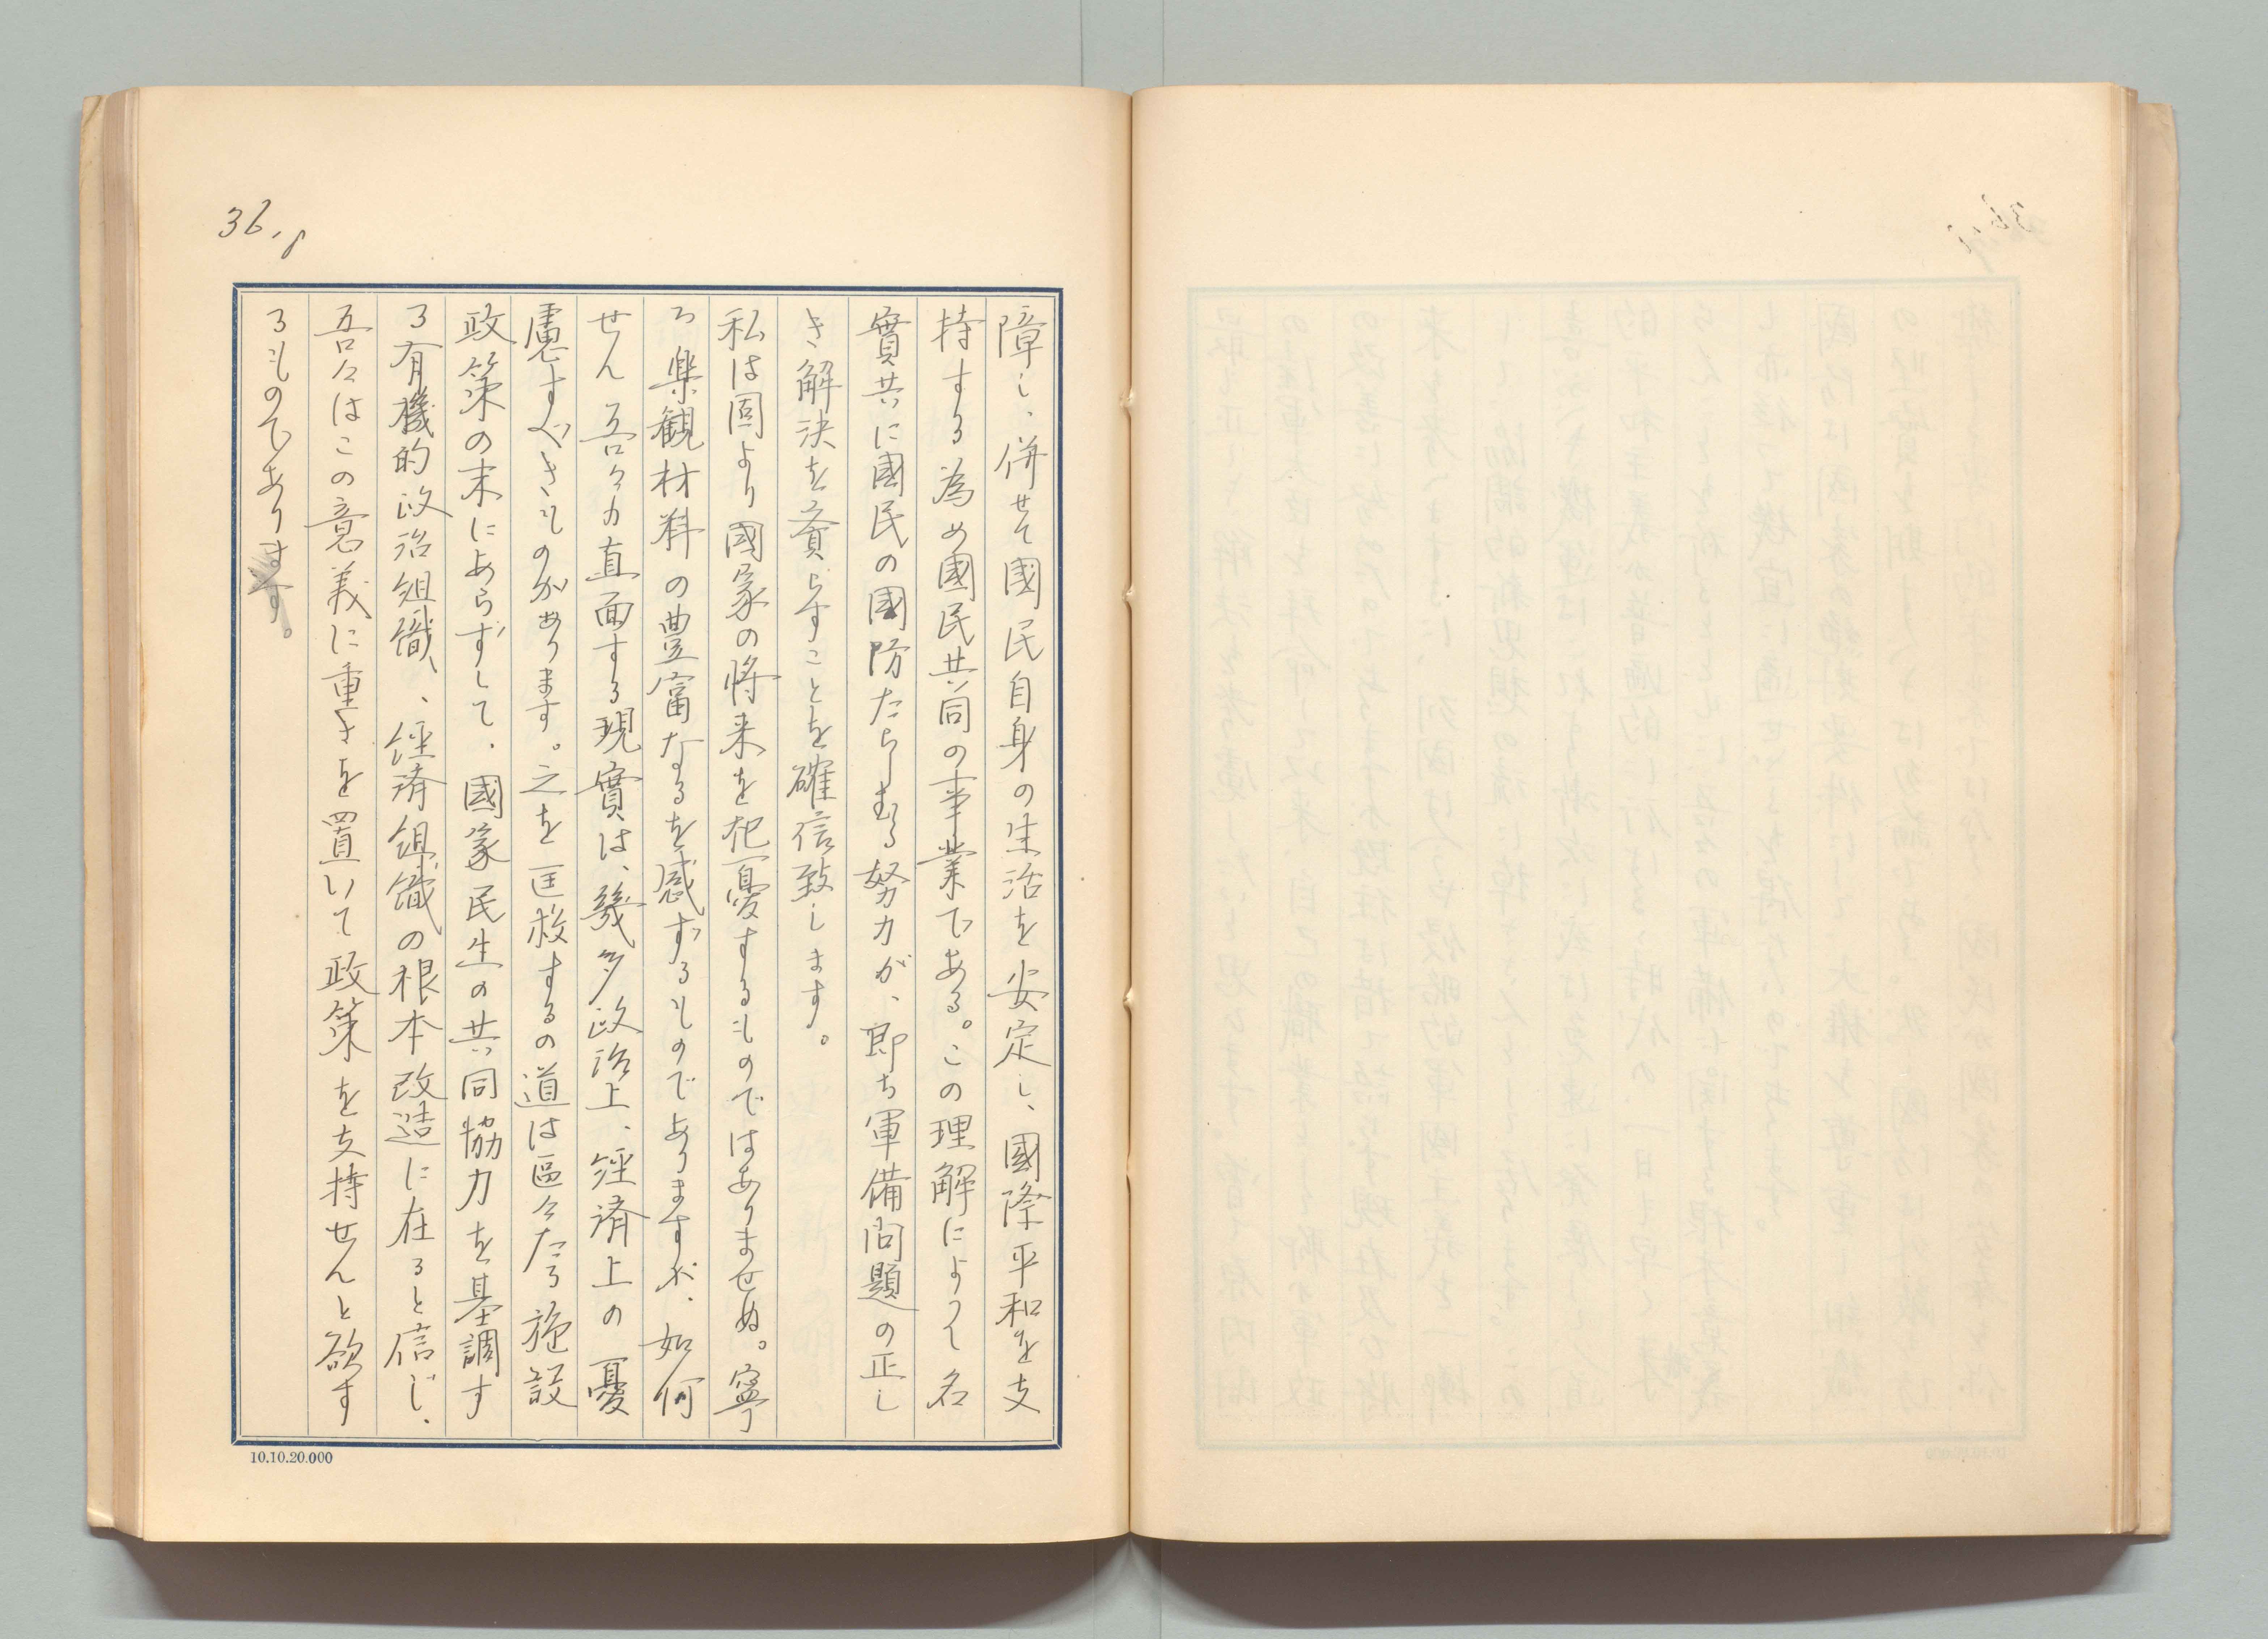 36.8
障し、併せて國民自身の生活を安定し、國際平和を支
持する為め國民共同の事業である。この理解によつて名
實共に國民の國防たらしむる努力が、即ち軍備問題の正し
き解決を齎らすことを確信致します。
私は固より國家の将来を杞憂するものではありませぬ。寧
ろ楽観材料の豊富なるを感ずるものでありますが、如何
せん吾々力直面する現實は、幾多政治上、経済上の憂
慮すべきものがあります。之を匡救するの道は區々たる施設
政策の末にあらずして、國家民生の共同協力を基調す
る有機的政治組織、経済組織の根本改造に在ると信じ、
吾々はこの意義に重きを置いて政策を支持せんと欲す
るものであります。
10.10.20.000